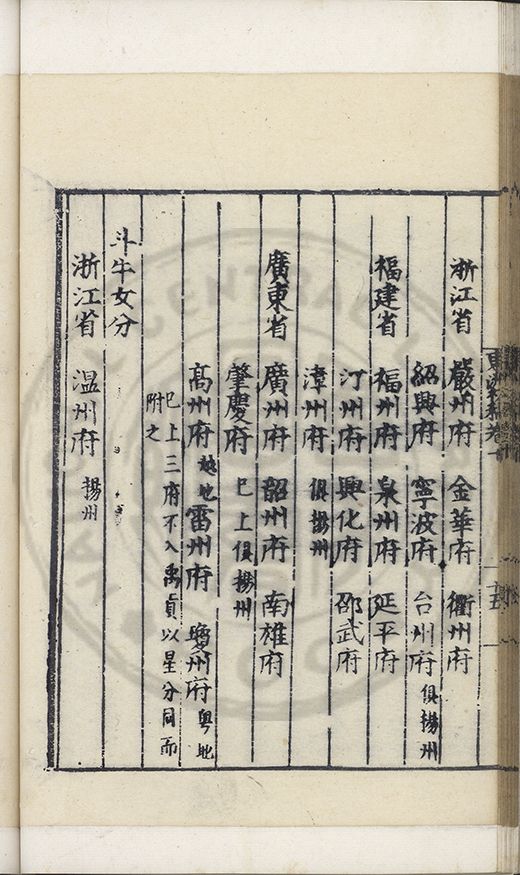 浙江省 嚴州府 金華府 衢州府
紹興府 寧波府 台州府 俱揚州
福建省 福州府 泉州府 延平府
汀州府 興化府 邵武府
漳州府 俱揚州
廣東省 廣州府 韶州府 南雄府
肇慶府 已上俱揚州
高州府 越地 雷州府 瓊州府 粤地
已上三府不入禹貢以星分同而
附之
斗牛女分
浙江省 温州府 揚州